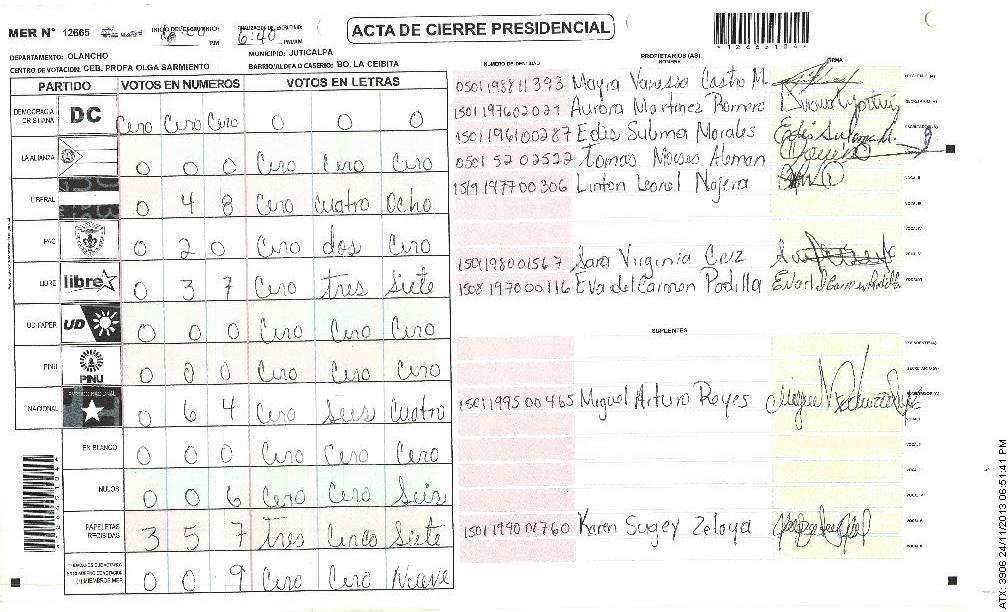 MER N° 12665
ACTA DE CIERRE PRESIDENCIAL
6:40 PM/AM
PM
DEPARTAMENTO: OLANCHO
MUNICIPIO: JUTICALPA
CENTRO DE VOTACION: CEB. PROFA OLGA SARMIENTO
BARRIO/ALDEA O CASERIO: BO. LA CEIBITA
PARTIDO VOTOS EN NUMEROS VOTOS EN LETRAS
DEMOCRACIA CRISTIANA DC Cero Cero Cero 0 0 0
LA ALIANZA 0 0 0 Cero Cero Cero
LIBERAL 0 4 8 Cero Cuatro Ocho
PAC 0 2 0 Cero dos Cero
LIBRE libre 0 3 7 Cero tres Siete
UD-FAPER UD 0 0 0 Cero Cero Cero
PINU PINU 0 0 0 Cero Cero Cero
NACIONAL PARTIDO NACIONAL 0 6 4 Cero Seis Cuatro
EN BLANCO 0 0 0 Cero Cero Cero
NULOS 0 0 6 Cero Cero Seis
PAPELETAS RECIBIDAS 3 5 7 Tres Cinco Siete
(*) MIEMBROS MER 0 0 9 Cero Cero Nueve
PROPIETARIOS (AS)
NUMERO DE IDENTIDAD NOMBRE FIRMA
0501198811393 Mayra Vanessa Castro M.
1501197602021 Aurora Martinez Romero
1501196100287 Edis Sulima Morales
0501 52 02522 Tomas Moises Aleman
1519197700306 Linton Leonel Najera
1501198001567 Sara Virginia Cruz
1508197000116 Eva del Carmen Padilla
SUPLENTES
1501199500465 Miguel Arturo Reyes
1501199001760 Karen Sugey Zelaya
ATX: 3906 24/11/2013 06:51:41 PM